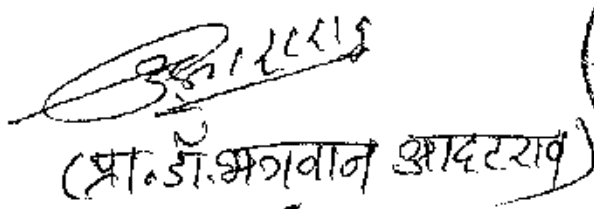 (प्रा.डॉ.भगवान आदटराव)